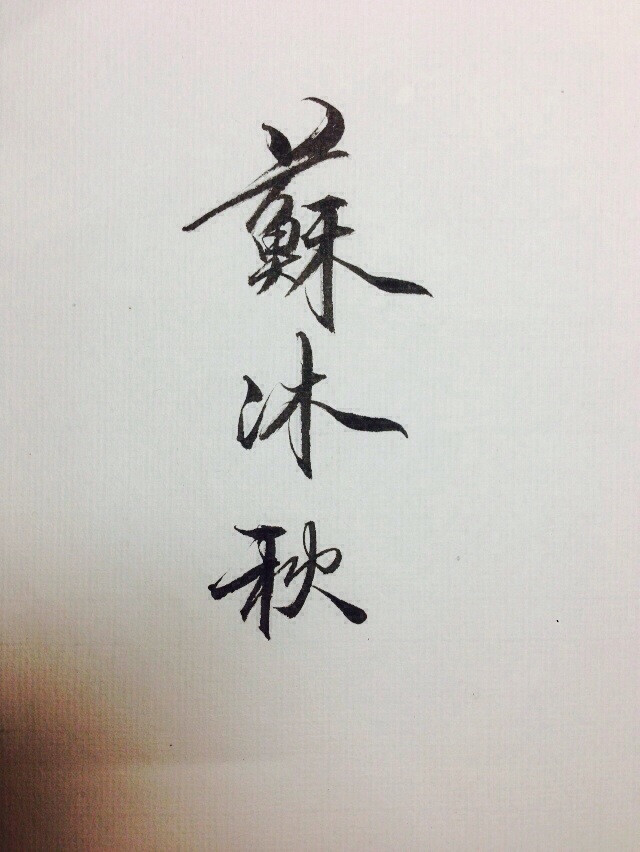 蘇沐秋